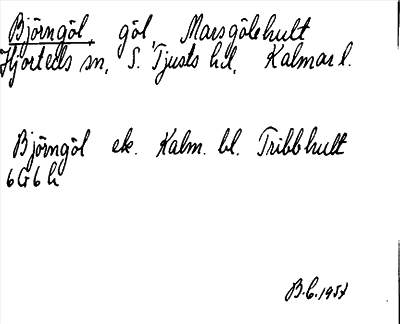 Björngöl, göl, Marsgölehult
Hjorteds sn, S. Tjusts hd, Kalmar l.
Björngöl ek. Kalm. bl. Tribbhult
6G6h
B.C. 1957